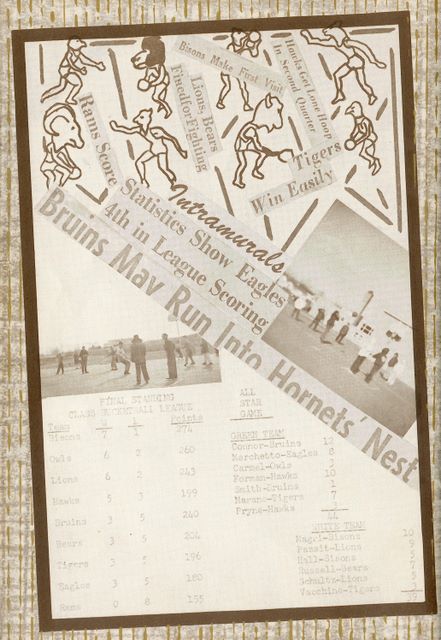 Bisons Make First Visit
Hawks Get Lone Hoop
In Second Quarter
Lions Bears
Fined for Fighting
Rams Score
Tigers
Win Easily
Intramurals
Statistics Show Eagles
4th in League Scoring
Bruins May Run Into Hornets' Nest
FINAL STANDING
CLASS BUCKETBALL LEAGUE
Team W L Points
Bisons 7 1 274
Owls 6 2 260
Lions 6 2 243
Hawks 5 3 199
Bruins 3 5 240
Bears 3 5 204
Tigers 3 5 196
Eagles 3 5 180
Rams 0 8 155
ALL
STAR
GAME
GREEN TEAM
Connor-Bruins 12
Marchetto-Eagles 8
Carmel-Owls 3
Forman-Hawks 10
Smith-Bruins 1
Marano-Tigers 7
Pryne-Hawks
WHITE TEAM
Magri-Bisons 10
Pansit-Lions 9
Hall-Bisons 5
Russell-Bears 7
Schultz-Lions 5
Vacchine-Tigers